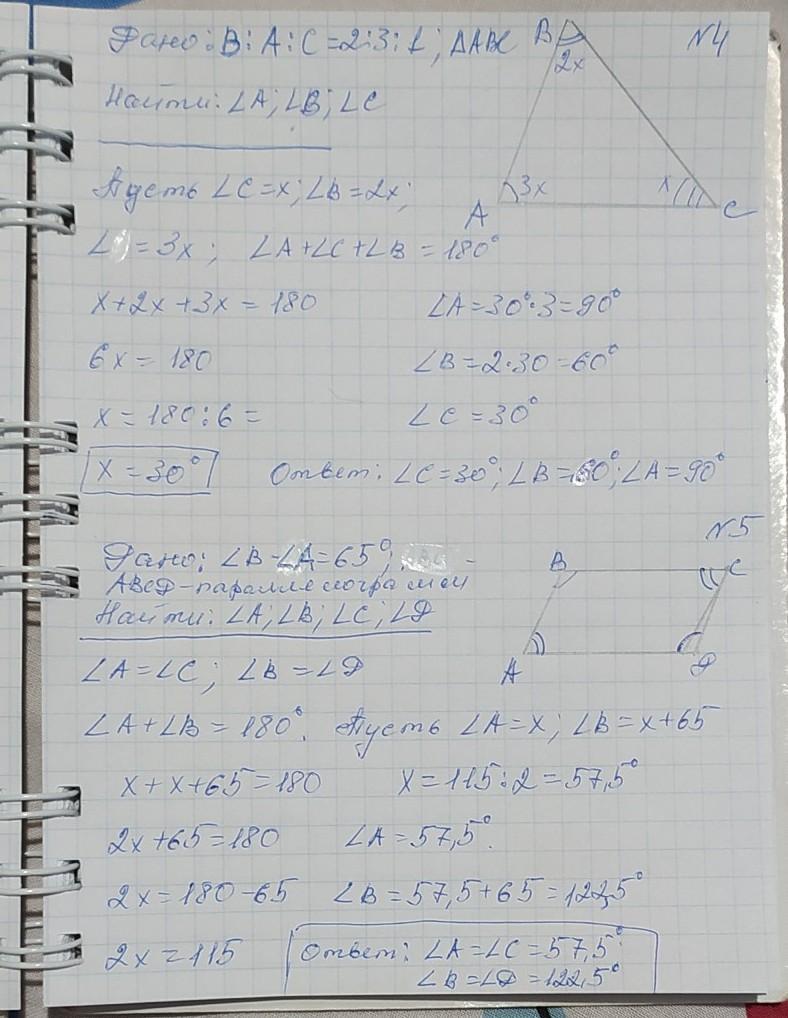 Дано: B:A:C=2:3:1; ΔABC
B
2x
N4
Найти: ∠A; ∠B; ∠C
Пусть ∠C=x; ∠B=2x;
A
3x
x
C
∠ =3x; ∠A+∠C+∠B=180°
x+2x+3x=180
∠A=30°·3=90°
6x=180
∠B=2·30=60°
x=180:6=
∠C=30°
x=30°
Ответ: ∠C=30°; ∠B=60°; ∠A=90°
N5
Дано: ∠B-∠A=65°;
ABCD-параллелограмм
Найти: ∠A; ∠B; ∠C; ∠D
B
C
A
D
∠A=∠C; ∠B=∠D
∠A+∠B=180°. Пусть ∠A=x; ∠B=x+65
x+x+65=180
x=115:2=57,5°
2x+65=180
∠A=57,5°.
2x=180-65
∠B=57,5+65=122,5°
2x=115
Ответ: ∠A=∠C=57,5°
∠B=∠D=122,5°